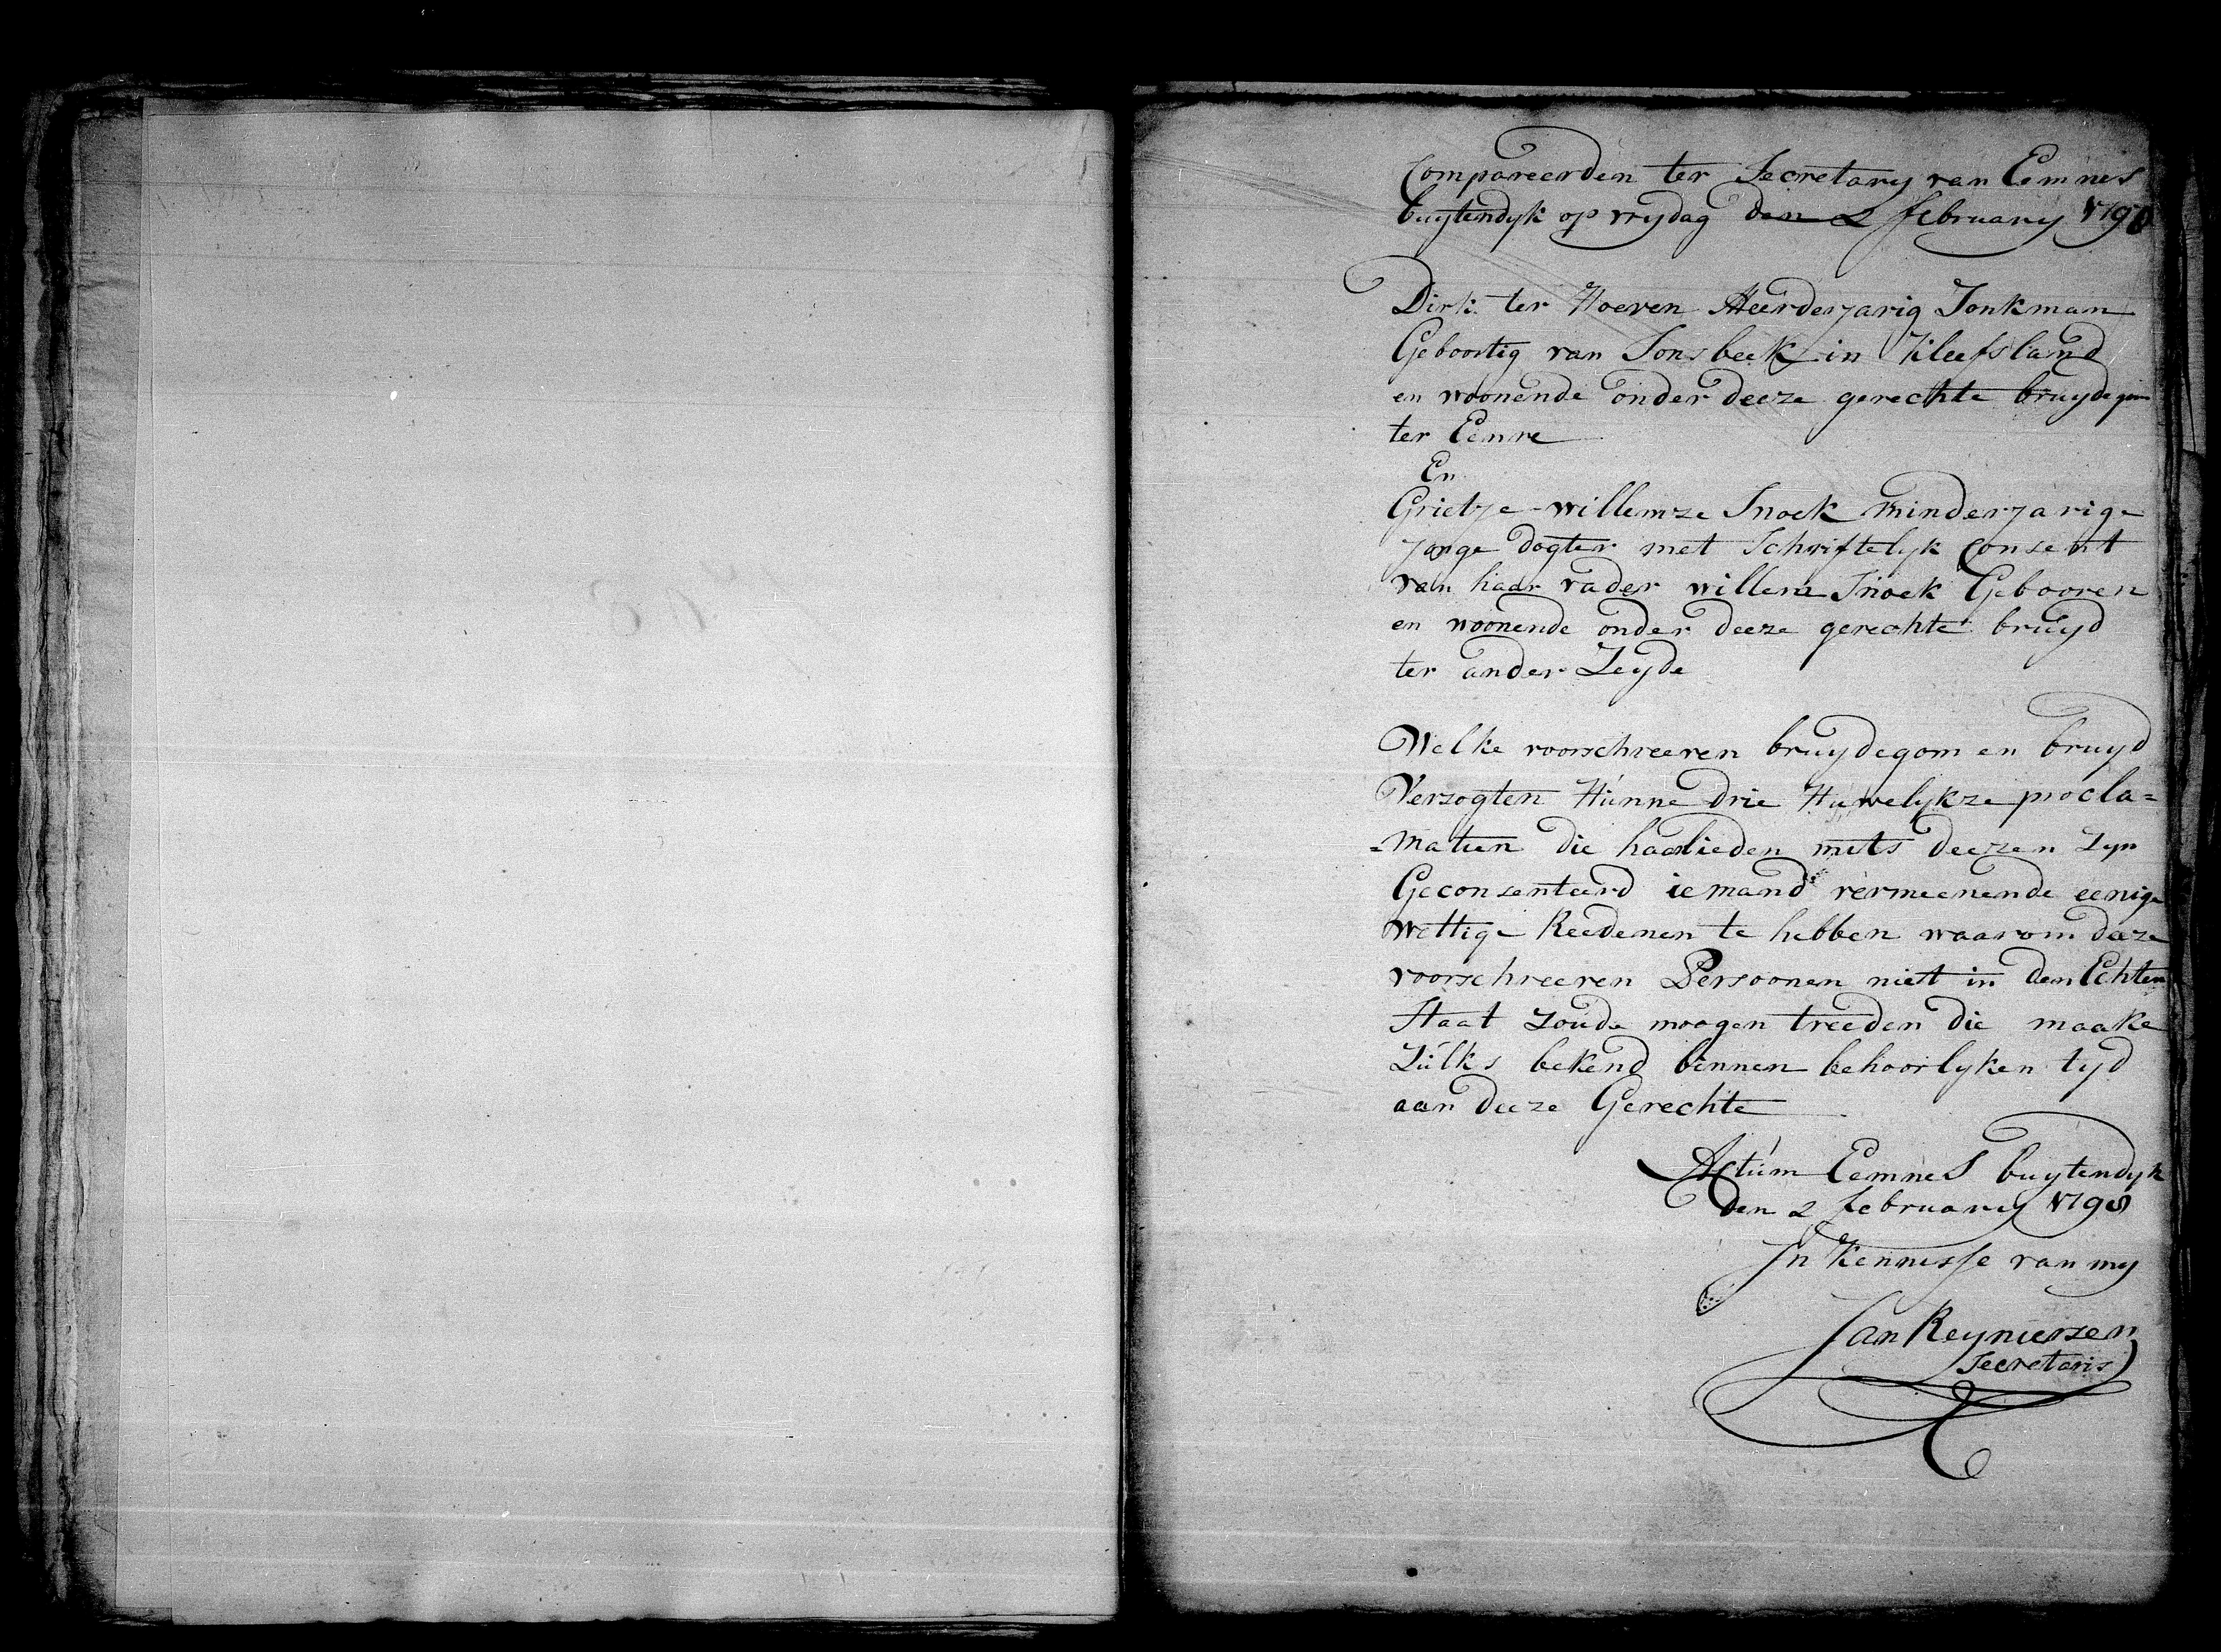 Compareerden ter Secretary van Eemnes
buytendyk op vrydag den 2 february 1798
Dirk ter Hoeven Meerderjarig Jonkman
Geboortig van Sonsbeek in Kleefsland
en woonende onder deeze gerechte bruydegom
ter Eenre
En
Grietje willemze Snoek minderjarige
jonge dogter met Schriftelyk Consent
van haar vader willem Snoek Gebooren
en woonende onder deeze gerechte bruyd
ter ander Zeyde
Welke voorschreeven bruydegom en bruyd
Verzogten Hunne drie Huwelykze procla=
=matien die haarlieden mits deezen zyn
Geconsenteerd iemand vermeenende eenige
wettige Reedenen te hebben waarom deeze
voorschreeven Persoonen niet in den Echten
Staat zoude moogen treeden die maake
Zulks bekend binnen behoorlyken tyd
aan deeze Gerechte
Actum Eemnes buytendyk
den 2 february 1798
In Kennisse van my
Jan Reynierzen
Secretaris